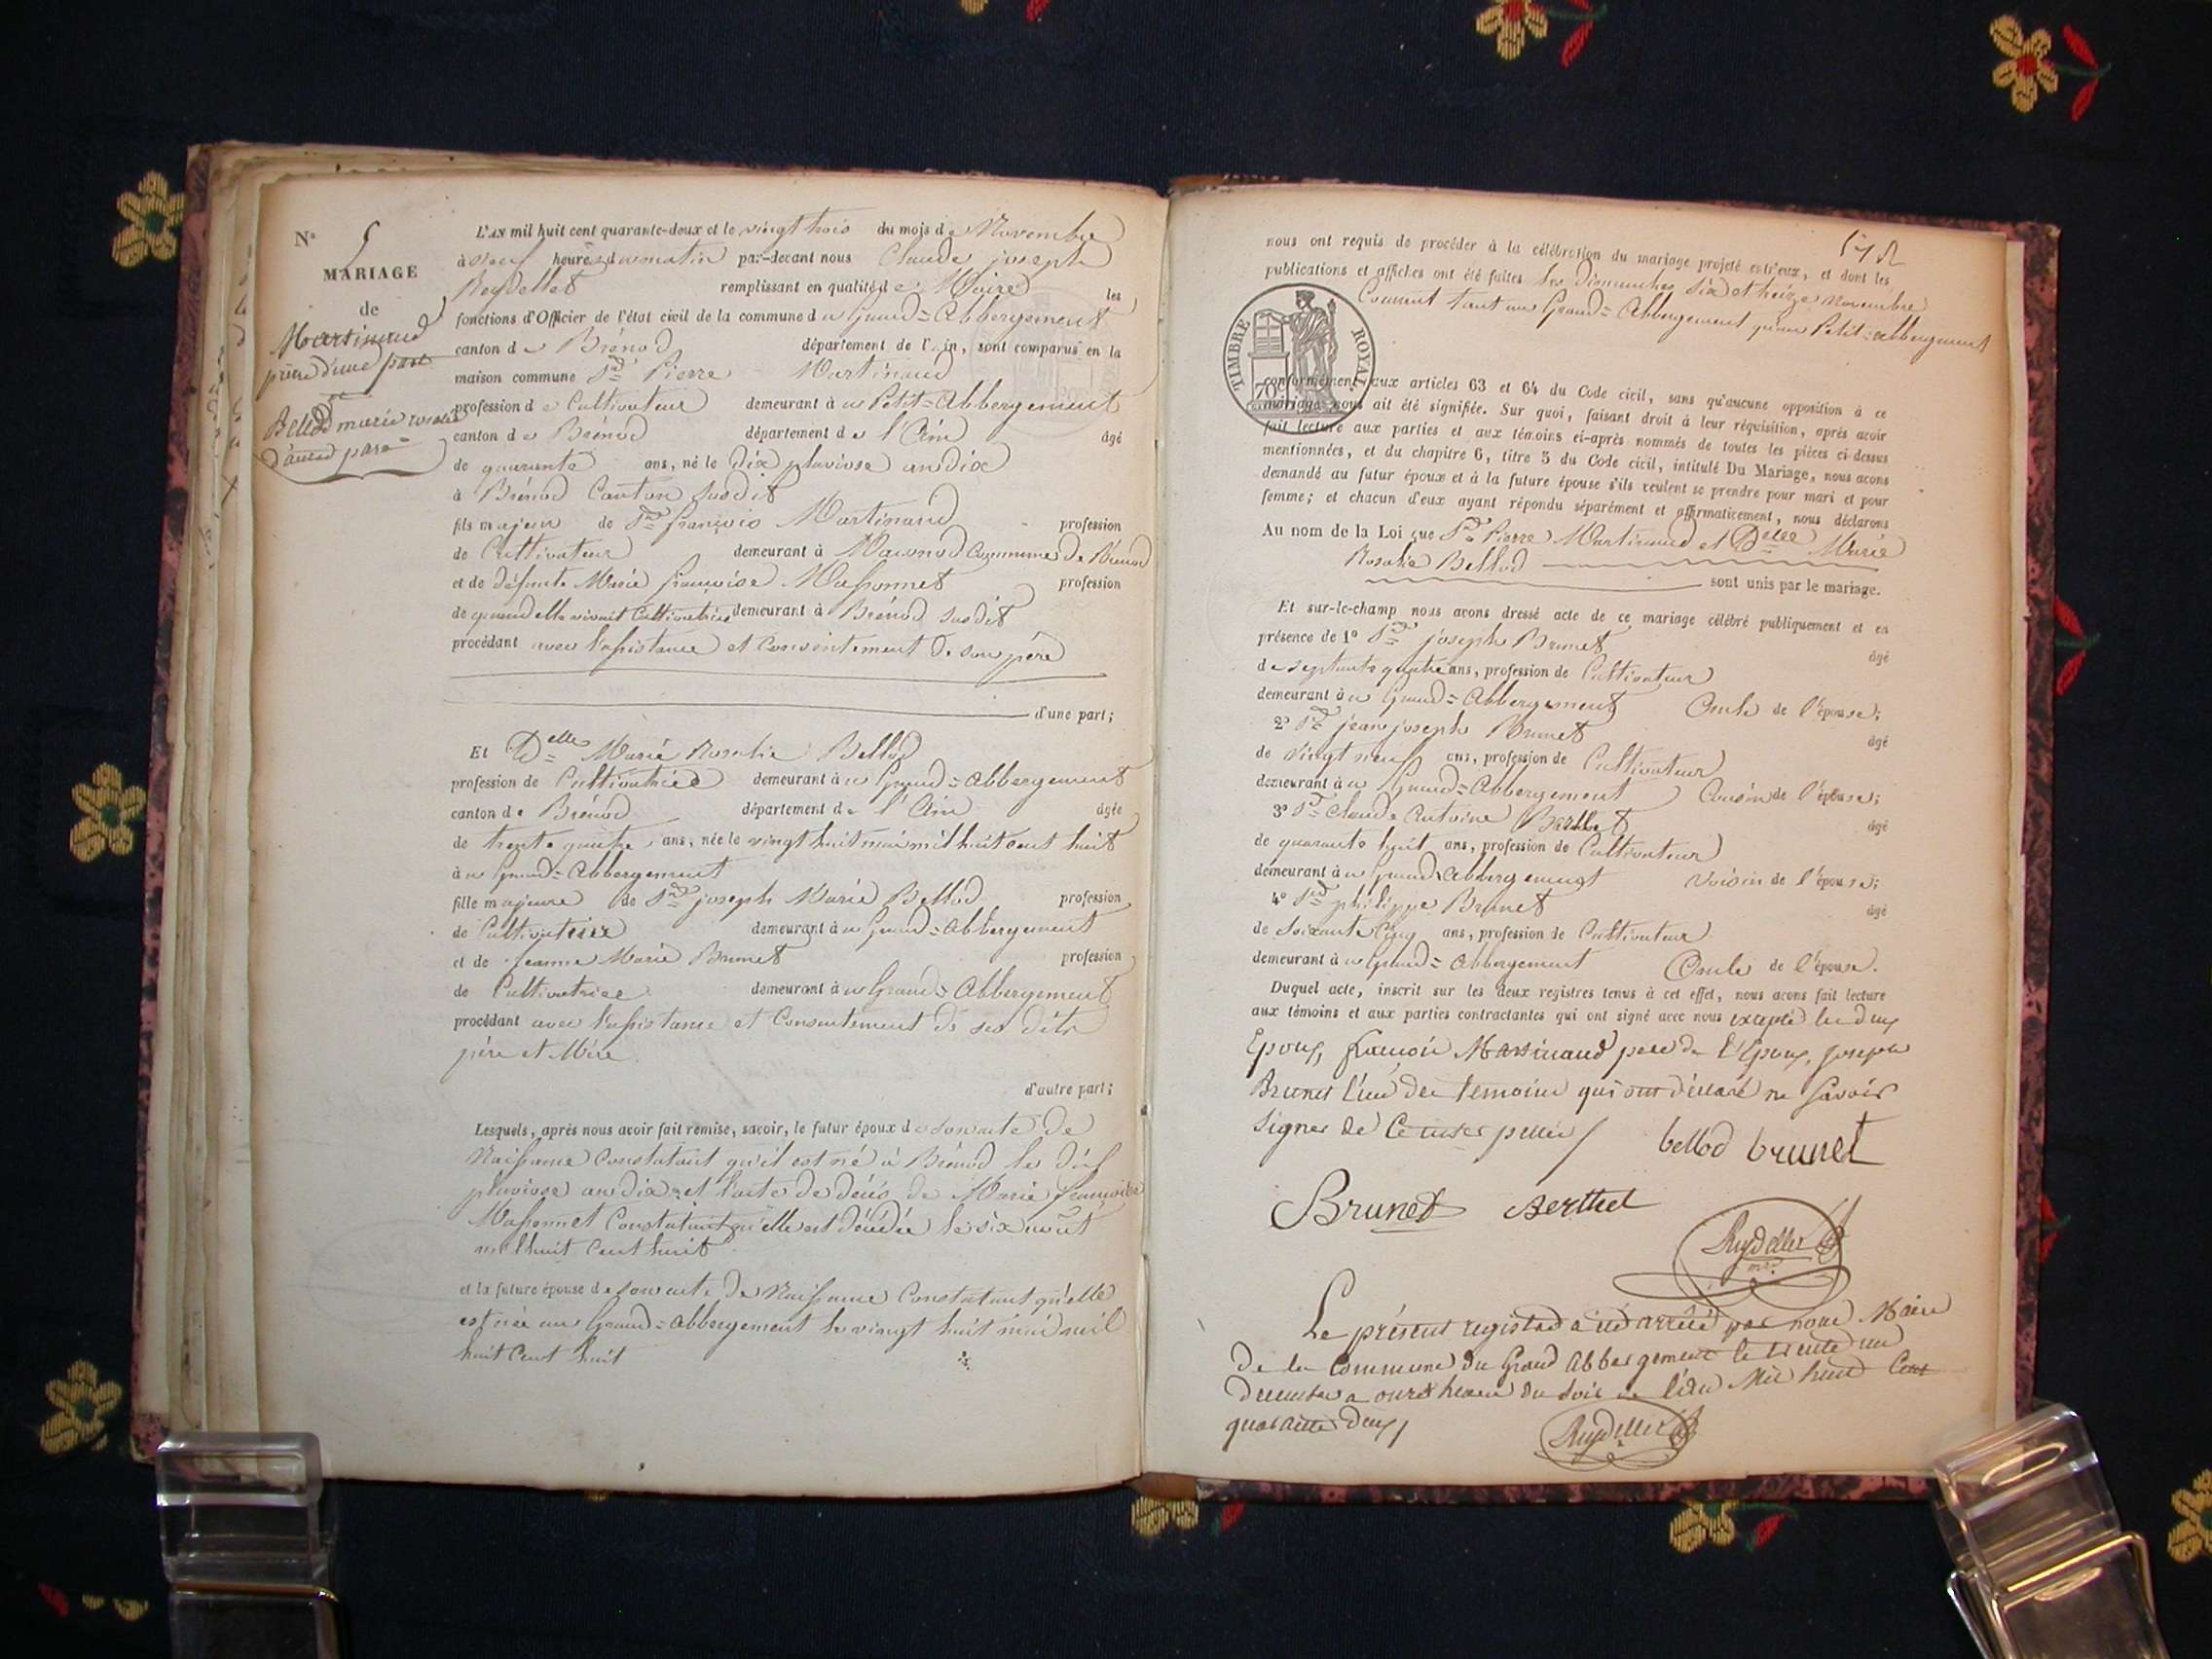 N° 5
MARIAGE
de
Martinand
pierre d'une part
et
Bellod marie rosalie
d'autre part
L'AN mil huit cent quarante-deux et le vingt trois du mois de Novembre
à neuf heures du matin par-devant nous Claude joseph
Reydellet remplissant en qualité de Maire les
fonctions d'Officier de l'état civil de la commune du Grand=Abbergement
canton de Brénod département de l'Ain, sont comparus en la
maison commune Sr Pierre Martinand
profession de Cultivateur demeurant à u Petit=Abbergement
canton de Brénod département de l'Ain âgé
de quarante ans, né le dix pluviose an dix
à Brénod Canton susdit
fils majeur de Sr françois Martinand profession
de Cultivateur demeurant à Commune de Brénod
et de défunte Marie françoise Massonnet profession
de quand elle vivait Cultivatrice demeurant à Brénod susdit
procédant avec l'assistance et Consentement de son père
d'une part;
Et Delle Marie Rosalie Bellod
profession de Cultivatrice demeurant à u Grand=Abbergement
canton de Brénod département de l'Ain âgée
de trente quatre ans, née le vingt huit mai mil huit cent huit
à u Grand=Abbergement
fille majeure de Sr joseph Marie Bellod profession
de Cultivateur demeurant à u Grand=Abbergement
et de jeanne Marie Brunet profession
de Cultivatrice demeurant à u Grand=Abbergement
procédant avec l'assistance et Consentement de ses dits
père et Mère
d'autre part;
Lesquels, après nous avoir fait remise, savoir, le futur époux de son acte de
Naissance Constatant qu'il est né à Brénod le dix
pluviose an dix et l'acte de décès de Marie françoise
Massonnet Constatant qu'elle est décédée le six août
mil huit Cent huit
et la future épouse de son acte de Naissance Constatant qu'elle
est née au Grand=Abbergement le vingt huit mai mil
huit Cent huit
nous ont requis de procéder à la célébration du mariage projeté entr'eux, et dont les
publications et affiches ont été faites les Dimanches six et treize novembre
Courant tant au Grand=Abbergement qu'au Petit=abbergement
TIMBRE ROYAL
70c
conformément aux articles 63 et 64 du Code civil, sans qu'aucune opposition à ce
mariage nous ait été signifiée. Sur quoi, faisant droit à leur réquisition, après avoir
fait lecture aux parties et aux témoins ci-après nommés de toutes les pièces ci-dessus
mentionnées, et du chapitre 6, titre 5 du Code civil, intitulé Du Mariage, nous avons
demandé au futur époux et à la future épouse s'ils veulent se prendre pour mari et pour
femme; et chacun d'eux ayant répondu séparément et affirmativement, nous déclarons
Au nom de la Loi que Sr Pierre Martinand et Delle Marie
Rosalie Bellod
sont unis par le mariage.
Et sur-le-champ nous avons dressé acte de ce mariage célébré publiquement et en
présence de 1° Sr joseph Brunet âgé
de septante quatre ans, profession de Cultivateur
demeurant à u Grand=Abbergement Oncle de l'épouse;
2° Sr jean joseph Brunet âgé
de vingt neuf ans, profession de Cultivateur
demeurant à u Grand=Abbergement Cousin de l'épouse;
3° Sr Claude Antoine Berthet âgé
de quarante huit ans, profession de Cultivateur
demeurant à u Grand=Abbergement Voisin de l'épouse;
4° Sr philippe Brunet âgé
de Soixante Cinq ans, profession de Cultivateur
demeurant à u Grand=Abbergement Oncle de l'épouse.
Duquel acte, inscrit sur les deux registres tenus à cet effet, nous avons fait lecture
aux témoins et aux parties contractantes qui ont signé avec nous excepté les deux
Epoux, françois Martinaud pere de l'Epoux, joseph
Brunet l'un des temoins qui ont déclaré ne savoir
signer de Ce interpellés /
bellod brunet
Brunet Berthet
Reydellet
mre
Le présent registre a été arrêté par nous Maire
de la Commune du Grand Abbergement le trente un
decembre a onze heures du soir de l'an Mil huit Cent
quarante deux /
Reydellet